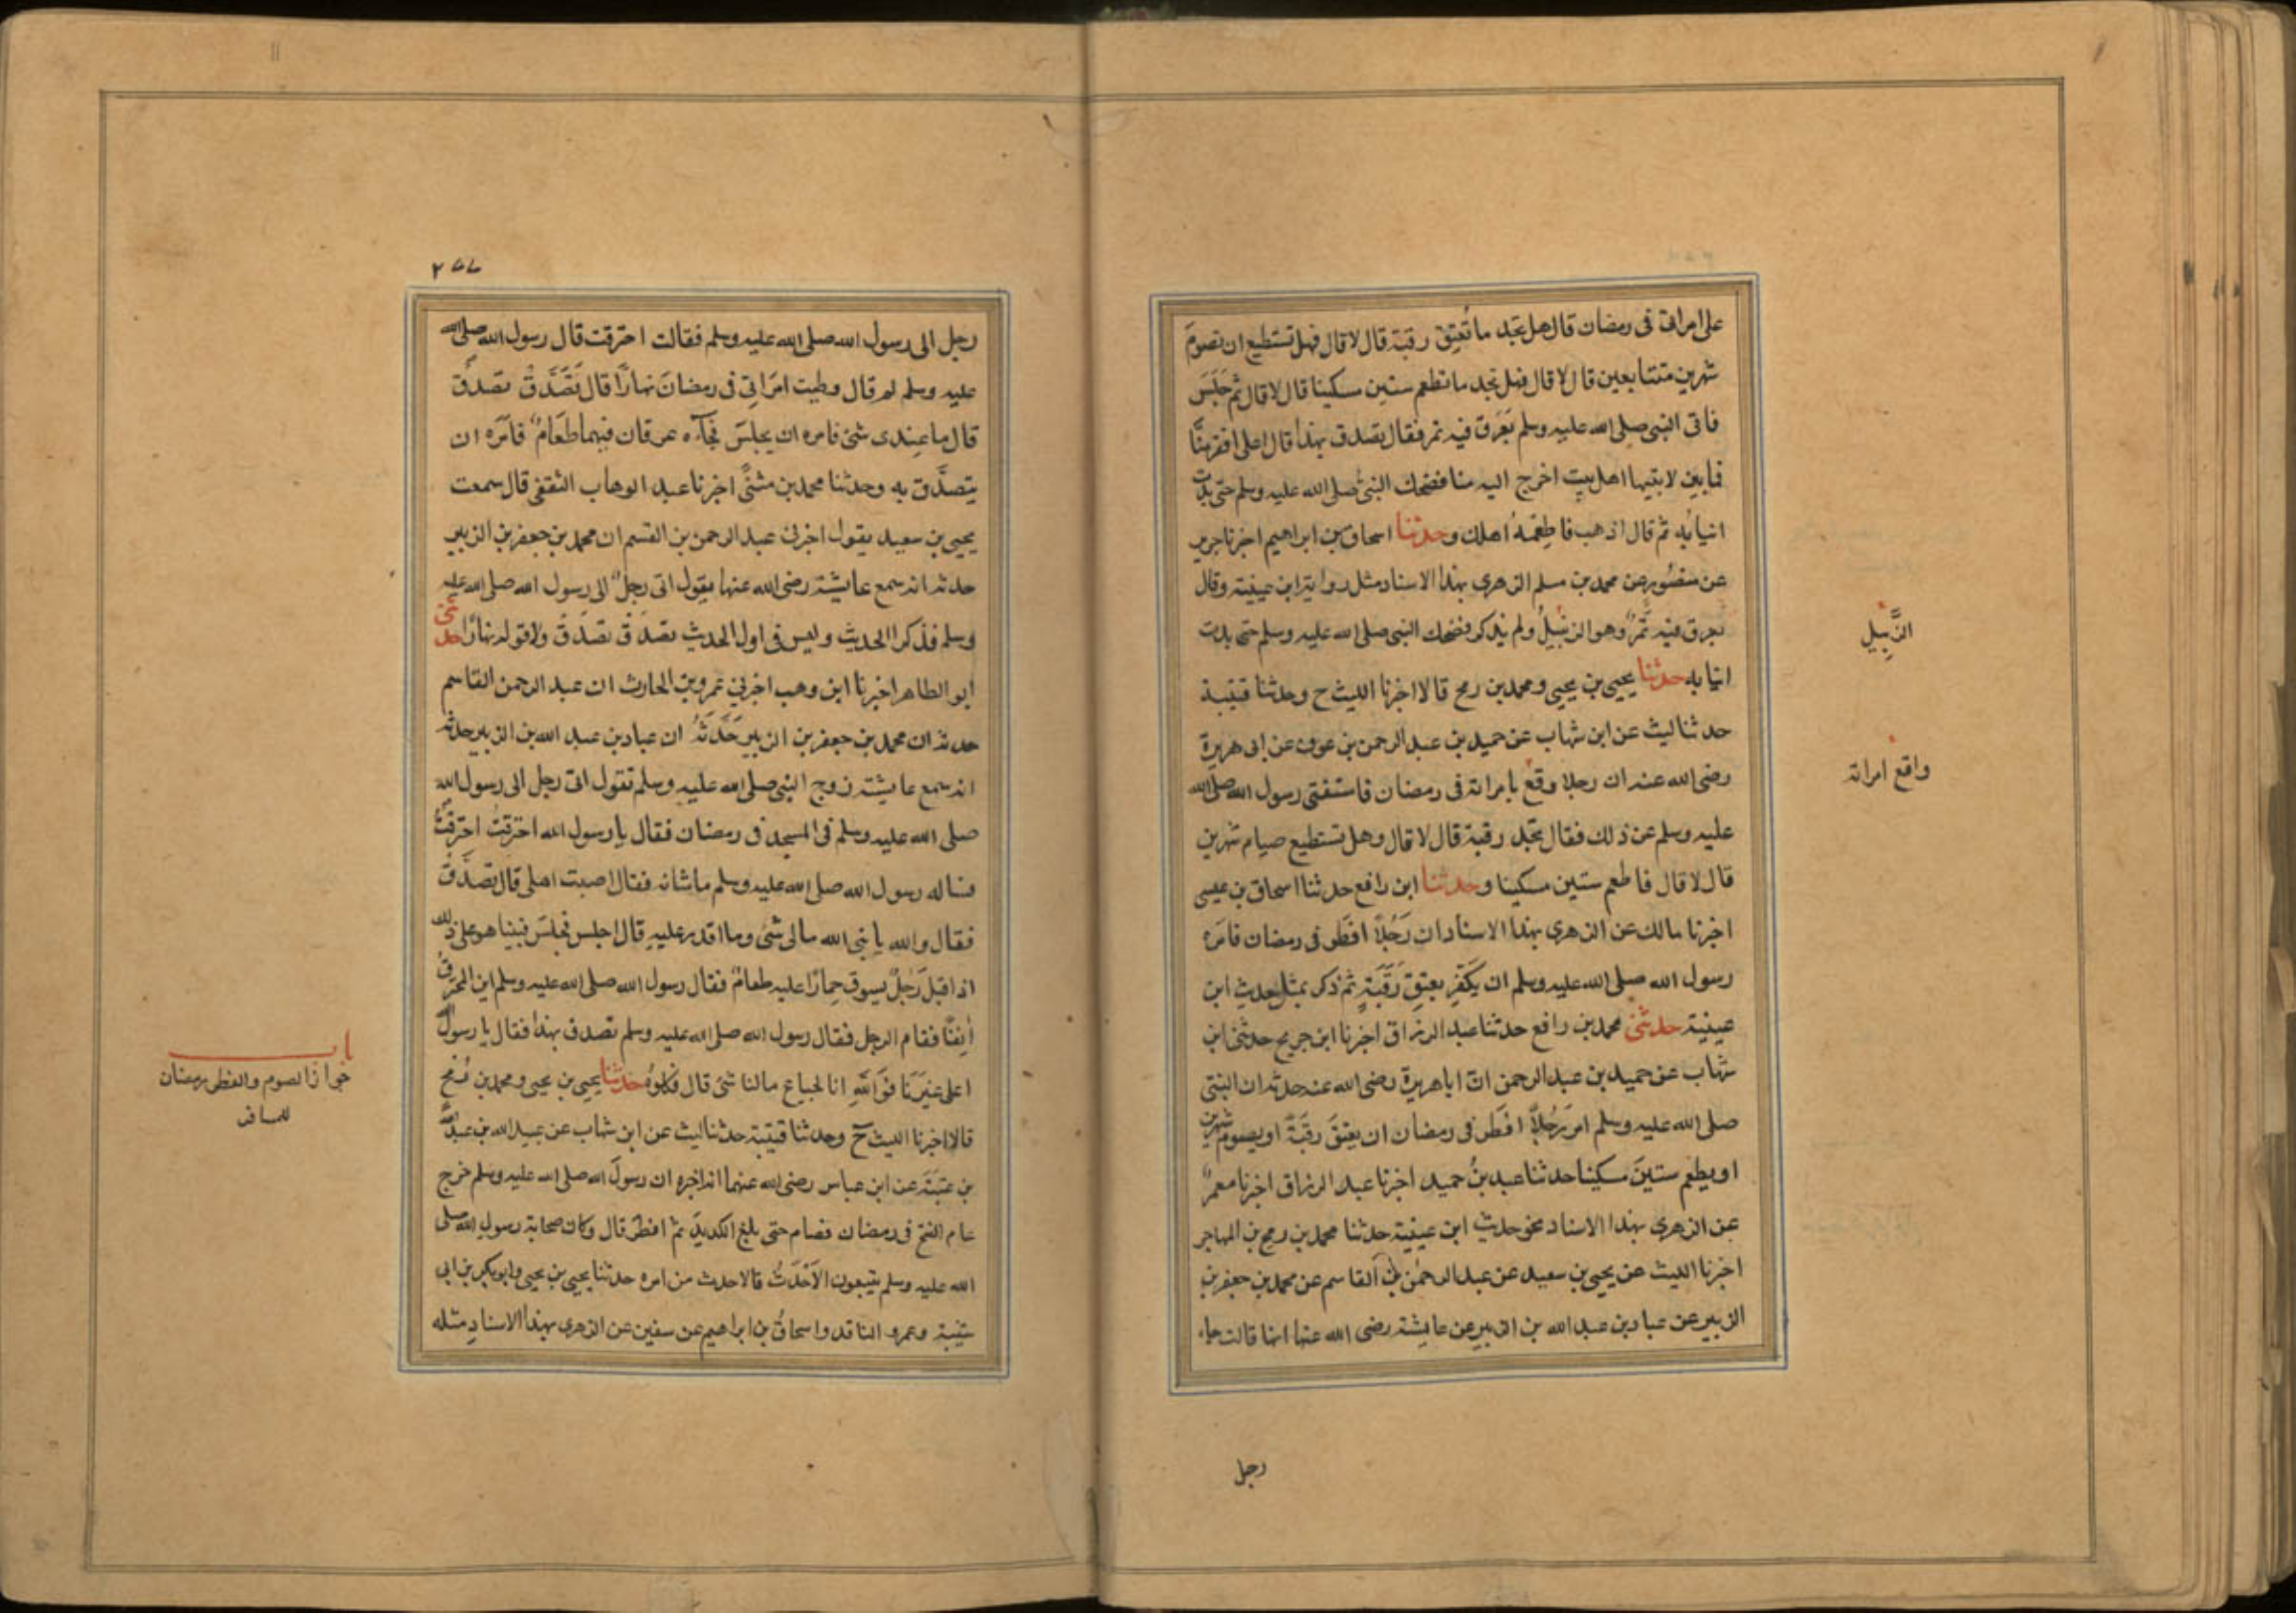 على امراتى فى رمضان قال هل تجد ما تُعتِق رقبة قال لا قال فهل تستطيع ان تصومَ
شهرين متتابعين قال لا قال فهل تجد ما تطعم ستين مسكينا قال لا قال ثم جَلَسَ
فاتى النبى صلى الله عليه وسلم بَعَرق فيه تمر فقال تصدق بهذا قال اعلى افقر مِنَّا
فما بين لابتيها اهل بيت احوج اليه منا فضحك النبىُّ صلى الله عليه وسلم حتى بدت
انيابُه ثم قال اذهب فاطعِمهُ اهلك وحدثنا اسحاق بن ابراهيم اخبرنا جرير
عن منصُور عن محمد بن مسلم الزهرى بهذا الاسناد مثل رواية ابن عيينة وقال
بعرق فيه تَمرٌ وهو الزنبيلُ ولم يذكر فضحك النبى صلى الله عليه وسلم حتى بدت
انيابه حدثنا يحيى بن يحيى ومحمد بن رمح قالا اخبرنا الليث ح وحدثنا قتيبة
حدثنا ليث عن ابن شهاب عن حميد بن عبد الرحمن بن عوف عن ابى هريرة
رضى الله عنه ان رجلا وقع بامراته فى رمضان فاستفتى رسول الله صلى الله
عليه وسلم عن ذلك فقال تجد رقبة قال لا قال وهل تستطيع صيام شهرين
قال لا قال فاطعم ستين مسكينا وحدثنا ابن رافع حدثنا اسحاق بن عيسى
اخبرنا مالك عن الزهرى بهذا الاسناد ان رَجُلًا افطَر فى رمضان فامَره
رسول الله صلى الله عليه وسلم ان يكَفِّر بعتِقِ رَقَبَةٍ ثم ذكر بمثل حديث ابن
عيينة حدثنى محمد بن رافع حدثنا عبد الرزاق اخبرنا ابن جريج حدثنى ابن
شهاب عن حميد بن عبد الرحمن ان اباهريرة رضى الله عنه حدثه ان النبى
صلى الله عليه وسلم امرَ رَجُلًا افطَر فى رمضان ان يعتِقَ رقبَةً او يصوم شهرين
او يطعم ستينَ مسكينا حدثنا عبد بنُ حميد اخبرنا عبد الرزاق اخبرنا معمرٌ
عن الزهرى بهذا الاسناد نحو حديث ابن عيينة حدثنا محمد بن رمح بن المهاجر
اخبرنا الليث عن يحيى بن سعيد عن عبد الرحمن بن القاسم عن محمد بن جعفر بن
الزبير عن عباد بن عبد الله بن الزبير عن عايشة رضى الله عنها انها قالت جاء
رجل
الزَّبِيل
واقع امراته
٢٧٧
رجل الى رسول الله صلى الله عليه وسلم فقالت احترقت قال رسول الله صلى الله
عليه وسلم لم قال وطيت امرَاتِى فى رمضانَ نهارًا قال تَصَدَّق تصدق
قال ما عِندى شئ فامره ان يجلسَ فجآءه عرقان فيهما طَعَامٌ فامَره ان
يتصدَّق به وحدثنا محمد بن مثنىً اخبرنا عبد الوهاب الثقفى قال سمعت
يحيى بن سعيد يقول اخبرنى عبد الرحمن بن القسم ان محمد بن جعفر بن الزبير
حدثه انه سمع عايشة رضى الله عنها يقول اتى رجلٌ الى رسول الله صلى الله عليه
وسلم فذكر الحديث وليس فى اول الحديث تصدَّق تصَدَّق ولا قوله نهارًا حدثنى
ابو الطاهر اخبرنا ابن وهب اخبرنى عمرو بن الحارث ان عبد الرحمن القاسم
حدثه ان محمد بن جعفر بن الزبير حَدَّثَهُ ان عباد بن عبد الله بن الزبير حدثه
انه سمع عايشة زوج النبى صلى الله عليه وسلم تقول اتى رجل الى رسول الله
صلى الله عليه وسلم فى المسجد فى رمضان فقال يا رسول الله احترقتُ احترقتُ
فساله رسول الله صلى الله عليه وسلم ما شانه فقال اصبت اهلى قال تصدَّق
فقال والله يا نبى الله مالى شئ وما اقدر عليهِ قال اجلس فجلسَ فبينا هو على ذلك
اذ اقبل رَجلٌ يسوق حِمارًا عليه طعامٌ فقال رسول الله صلى الله عليه وسلم اين المحترقُ
اٰنِفًا فقام الرجل فقال رسول الله صلى الله عليه وسلم تصدق بهذا فقال يا رسول الله
اعلى غيرَنا فوَاللهِ انا لجياع مالنا شئ قال فكلوُهُ حدثنا يحيى بن يحيى ومحمد بن رُمح
قالا اخبرنا الليث ح وحدثنا قتيبة حدثنا ليث عن ابن شهاب عن عبيد الله بن عبد الله
بن عتبَة عن ابن عباس رضى الله عنهما انه اخبره ان رسولَ الله صلى الله عليه وسلم خرج
عام الفتح فى رمضان فصام حتى بلغ الكديدَ ثم افطَر قال وكان صحابة رسول الله صلى
الله عليه وسلم يتبعون الاَحْدَثُ فالاحدث من امره حدثنا يحيى بن يحيى وابوبكر بن ابى
شيبة وعمرو الناقد واسحاقُ بن ابراهيم عن سفين عن الزهرى بهذا الاسنادِ مثله
باب
جواز الصوم والفطر برمضان
للمسافر